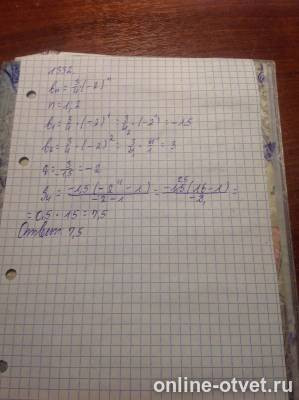 1332.
bₙ = 3/4 (-2)ⁿ
n = 1, 2
b₁ = 3/4 · (-2)¹ = 3/4 · (-2) = -1,5
b₂ = 3/4 · (-2)² = 3/4 · 4/1 = 3
q = 3/-1,5 = -2
S₄ = -1,5(-2⁴ - 1)/-2 - 1 =
= 0,5 · 15 = 7,5
Ответ: 7,5
online-otvet.ru